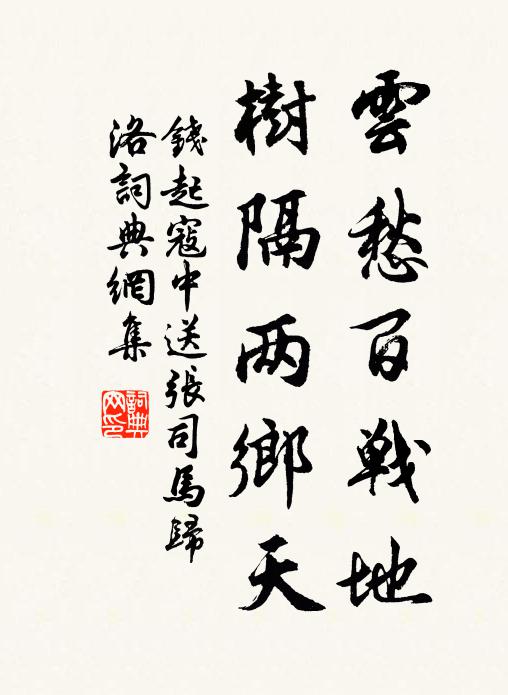 雲愁百戰地
樹隔两鄉天
錢起寇中送張司馬歸
洛詞典網集
詞典网印